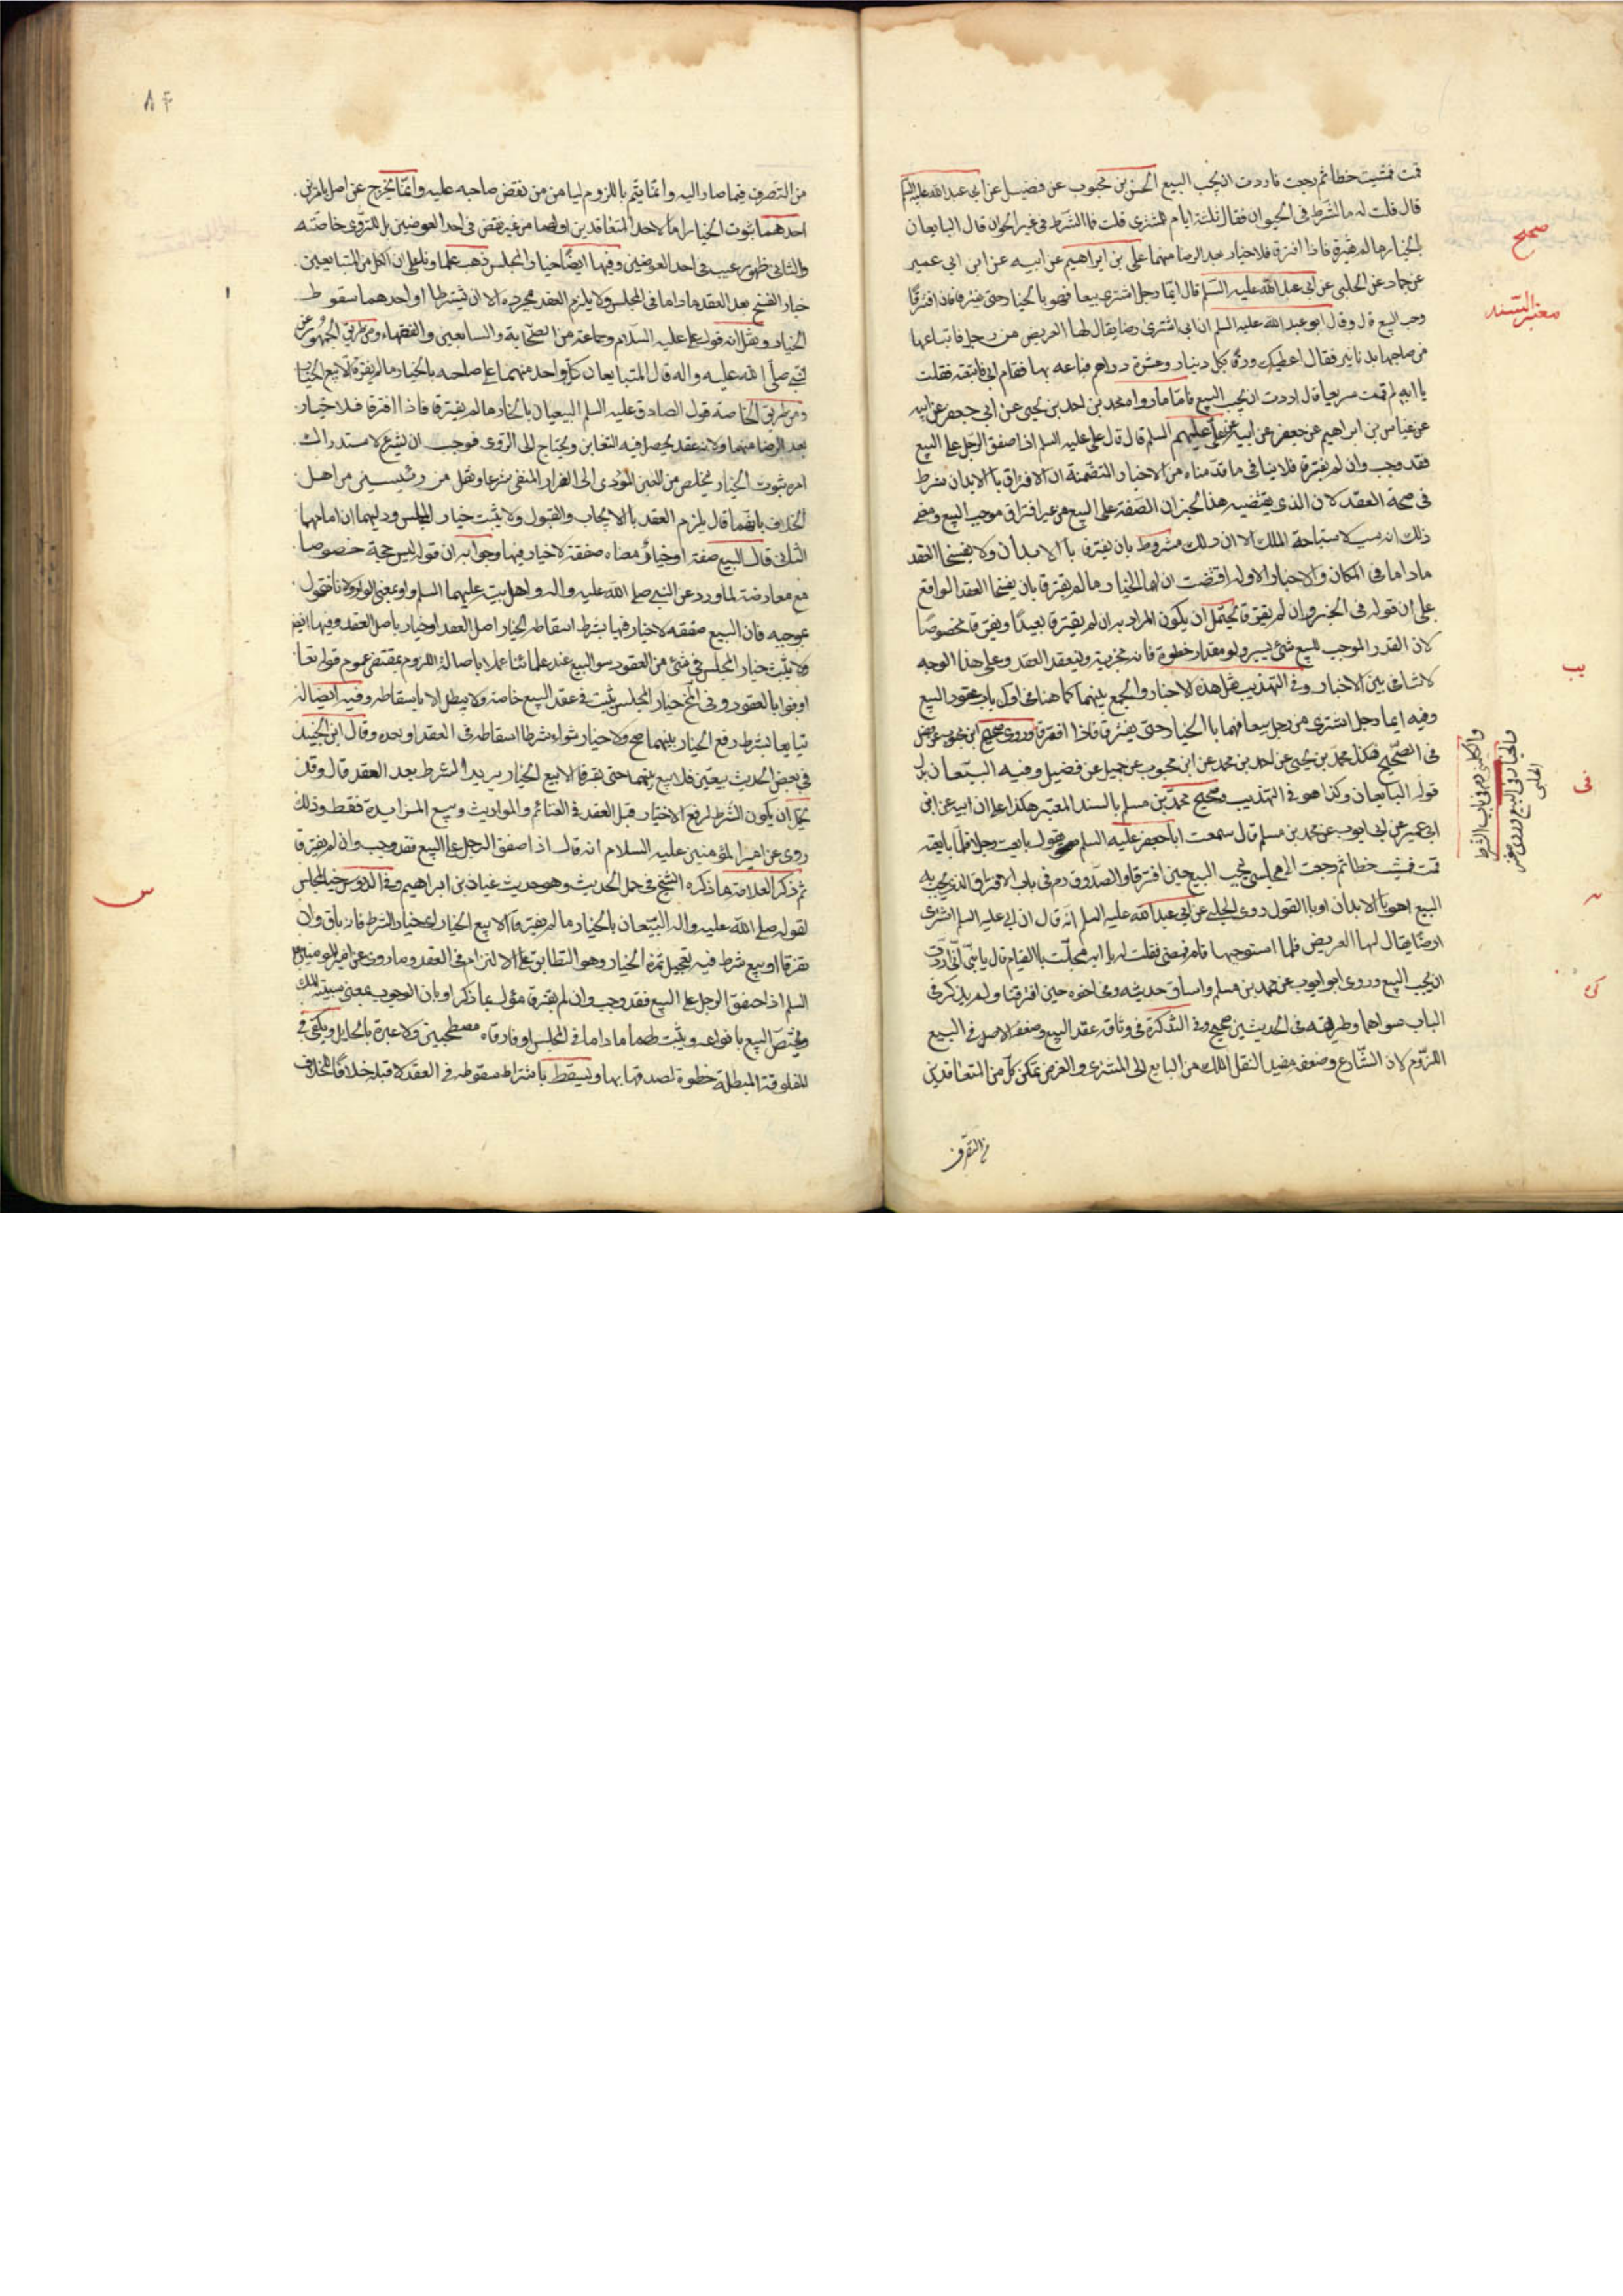 قمت فمشيت خطا ثم رجعت فاردت ان يجب البيع الحسن بن محبوب عن فضيل عن ابي عبد الله عليه السلم
قال قلت له ما الشرط فى الحيوان فقال ثلثة ايام للمشترى قلت فما الشرط فى غير الحيوان قال البايعان
بالخيار ما لم يفترقا فاذا افترقا فلا خيار بعد الرضا منهما على بن ابراهيم عن ابيه عن ابن ابي عمير
عن حماد عن الحلبى عن ابي عبد الله عليه السلم قال ايما رجل اشترى بيعا فهو بالخيار حتى يفترقا فاذا افترقا
وجب البيع قال وقال ابو عبد الله عليه السلم ان ابي اشترى ارضا يقال لها العريض من رجل فابتاعها
من صاحبها بدنانير فقال اعطيك ورقا بكل دينار وعشرة دراهم فباعه بها فقام ابي فاتبعته فقلت
يا ابه لم قمت سريعا قال اردت ان يجب البيع فاما ما رواه محمد بن احمد بن يحيى عن ابي جعفر عن ابيه
عن غياث بن ابراهيم عن جعفر عن ابيه عن على عليهم السلم قال قال على عليه السلم اذا صفق الرجل على البيع
فقد وجب وان لم يفترقا فلا ينافى ما قدمناه من الاخبار المتضمنة ان الافتراق بالابدان شرط
فى صحة العقد لان الذى يقتضيه هذا الخبر ان الصفقة على البيع من غير افتراق موجب البيع ومعنى
ذلك انه سبب لاستباحة الملك الا ان ذلك مشروط بان يفترقا بالابدان ولا يفسخا العقد
ماداما فى المكان والاخبار الاولة اقتضت ان لهما الخيار ما لم يفترقا بان يفسخا العقد الواقع
على ان قوله فى الخبر وان لم يفترقا يحتمل ان يكون المراد به ان لم يفترقا بعيدا وتفرقا مخصوصا
لان القدر الموجب للبيع شئ يسير ولو مقدار خطوة فانه يجزى به وينعقد العقد وعلى هذا الوجه
لا تنافى بين الاخبار وفى التهذيب مثل هذه الاخبار والجمع بينهما كما هنا فى اول باب عقود البيع
وفيه ايما رجل اشترى من رجل بيعا فهما بالخيار حتى يفترقا فاذا افترقا
فى الصحيح فكل محمد بن يحيى عن احمد بن محمد عن ابن محبوب عن جميل عن فضيل وفيه البيعان بدل
قوله البايعان وكذا هو فى التهذيب وصحيح محمد بن مسلم بالسند المعتبر هكذا على ان ابيه عن ابن
ابي عمير عن ابي ايوب عن محمد بن مسلم قال سمعت ابا جعفر عليه السلم يقول بايعت رجلا فلما بايعته
قمت فمشيت خطا ثم رجعت الى مجلسى ليجب البيع حين افترقنا والصدوق دم فى باب الافتراق الذى يجب به
البيع اهو بالابدان او بالقول روى الحلبى عن ابي عبد الله عليه السلم انه قال ان ابي عليه السلم اشترى
ارضا يقال لها العريض فلما استوجبها قام فمضى فقلت له يا ابه عجلت بالقيام قال يا بنى انى اردت
ان يجب البيع وروى ابو ايوب عن محمد بن مسلم وساق حديثه وفى اخره حين افترقنا ولم يذكر فى
الباب سواهما وطريقه فى الحديثين صحيح وفى التذكرة فى وثاقة عقد البيع وضعفه الاصل فى البيع
اللزوم لان الشارع وضعه مفيد النقل الملك من البايع الى المشترى والغرض تمكن كل من المتعاقدين
من التصرف
صحيح
معتبر السند
يب
فى
من التصرف فيما صار اليه وانما يتم باللزوم ليامن من نقض صاحبه عليه وانما يخرج عن اصل بامرين
احدهما ثبوت الخيار اما لاحد المتعاقدين او لهما من غير نقص فى احد العوضين بل للتروى خاصة
والثانى ظهور عيب فى احد العوضين وفيها ايضا خيار المجلس ذهب علماؤنا الى ان لكل من المتبايعين
خيار الفسخ بعد العقد ماداما فى المجلس ولا يلزم العقد بمجرده الا ان يشترطا او احدهما سقوط
الخيار ونقل انه قول على عليه السلام وجماعة من الصحابة والتابعين والفقهاء ومن طريق الجمهور عن
النبي صلى الله عليه واله قال المتبايعان كل واحد منهما على صاحبه بالخيار ما لم يفترقا الا بيع الخيار
ومن طريق الخاصة قول الصادق عليه السلم البيعان بالخيار ما لم يفترقا فاذا افترقا فلا خيار
بعد الرضا منهما ولانه عقد يحصل فيه التغابن ويحتاج الى التروى فوجب ان يشرع لاستدراك
امره ثبوت الخيار يخلص من الغبن المؤدى الى الضرار المنفى شرعا ونقل من رئيسين من اهل
الخلاف بانهما قال يلزم العقد بالايجاب والقبول ولا يثبت خيار المجلس ودليهما ان امامهما
الثانى قال البيع صفقة او خيار ومعناه صفقة لا خيار فيها وجوابه ان قوله ليس حجة خصوصا
مع معارضة لما ورد عن النبي صلى الله عليه واله واهل بيت عليهما السلم واو بمعنى الواو ولانا نقول
بموجبه فان البيع صفقة لا خيار فيها بشرط اسقاط الخيار اصل العقد او خيار باصل العقد وفيها ايضا
ولا يثبت خيار المجلس فى شئ من العقود سوى البيع عند علمائنا عملا باصالة اللزوم بمقتضى عموم قوله تعالى
اوفوا بالعقود وفى الخ خيار المجلس يثبت فى عقد البيع خاصة ولا يبطل الا باسقاطه وفيه ايضا لو
تبايعا بشرط رفع الخيار بينهما صح ولا خيار سواء شرطا اسقاطه فى العقد او بعده وقال ابن الجنيد
فى بعض الحديث بيعين فلا بيع بينهما حتى يفترقا الا بيع الخيار يريد الشرط بعد العقد قال وقد
يحتمل ان يكون الشرط لرفع الاختيار قبل العقد فى الغنائم والمواريث وبيع المزايدة فقط وذلك
روى عن امير المؤمنين عليه السلام انه قال اذا صفق الرجل على البيع فقد وجب وان لم يفترقا
ثم ذكر العلامة ما ذكره الشيخ فى حمل الحديث وهو حديث غياث بن ابراهيم وفى الدروس خيار المجلس
لقوله صلى الله عليه واله البيعان بالخيار ما لم يفترقا الا بيع الخيار اى خيار الشرط فانه باق وان
تفرقا او بيع شرط فيه تعجيل ثمرة الخيار وهو التطابق على الالتزام فى العقد وما روى عن امير المومنين عليه
السلم اذا صفق الرجل على البيع فقد وجب وان لم يفترقا مؤول بما ذكر او بان الوجوب بمعنى سببية الملك
ويختص البيع بانواعه ويثبت لهما ماداما فى المجلس او فارقاه مصطحبين ولا عبرة بالحايل ويكفى فى
المفارقة المبطلة خطوة لصدقها بها ويسقط باشتراط سقوطه فى العقد لا قبله خلافا للخلاف